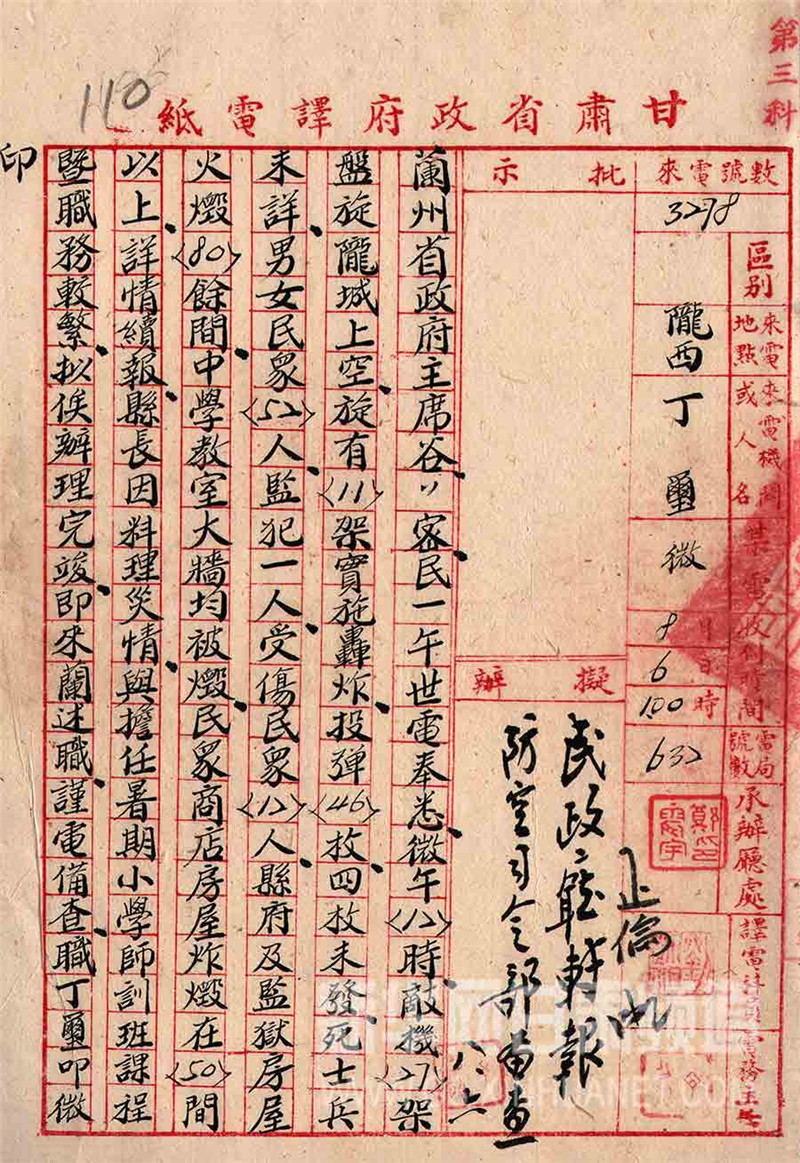 第三科
110
甘肅省政府譯電紙
來電號數
3278
區別
來電地點
隴西
來電機關或人名
丁璽
微
8
6
日
100
時
電局號數
632
承辦廳處
批示
擬辦
正倫
民政廳轉報
防空司令部備查
八六
蘭州省政府主席谷密民一午世電奉悉微午〈12〉時敵機〈27〉架
盤旋隴城上空旋有〈11〉架實施轟炸投弹〈46〉枚四枚未發死士兵
未詳男女民眾〈52〉人監犯一人受傷民眾〈12〉人縣府及監獄房屋
火燬〈80〉餘間中學教室大牆均被燬民眾商店房屋炸燬在〈50〉間
以上詳情續報縣長因料理災情與擔任暑期小學師訓班課程
暨職務較繁拟俟辦理完竣即來蘭述職謹電備查職丁璽叩微
印